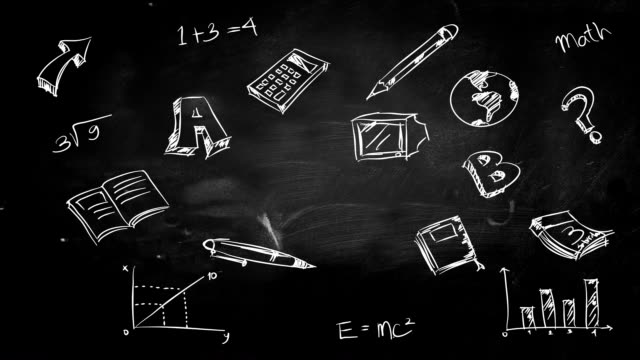 1+3=4
Math
3√9
A
B
3
x
10
0
y
E = mc²
0
1 2 3 4